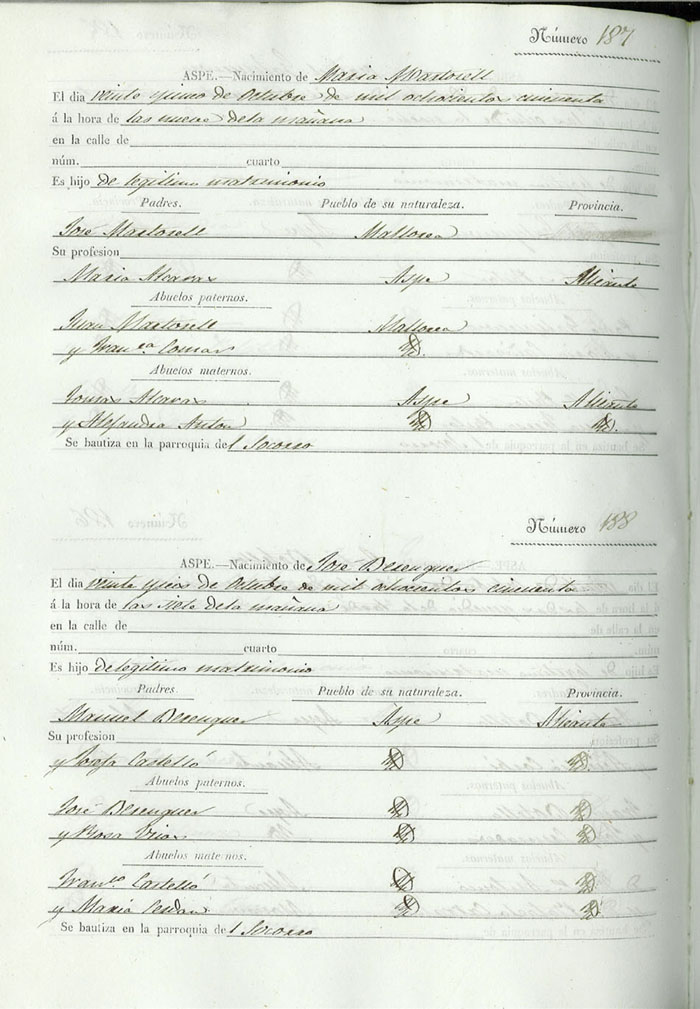 Número 187
ASPE.—Nacimiento de Maria Martorell
El dia veinte y cinco de Octubre de mil ochocientos cincuenta
á la hora de las nueve dela mañana
en la calle de
núm. cuarto
Es hijo de legitimo matrimonio
Padres. Pueblo de su naturaleza. Provincia.
José Martorell Mallorca
Su profesion
Maria Alcaras Aspe Alicante
Abuelos paternos.
Juan Martorell Mallorca
y Fran.ca Comas
Abuelos maternos.
Tomas Alcaras Aspe Alicante
y Alejandra Anton
Se bautiza en la parroquia del Socorro
Número 188
ASPE.—Nacimiento de Jose Berenguer
El dia veinte y seis de Octubre de mil ochocientos cincuenta
á la hora de las siete dela mañana
en la calle de
núm. cuarto
Es hijo delegitimo matrimonio
Padres Pueblo de su naturaleza. Provincia.
Manuel Berenguer Aspe Alicante
Su profesion
y Josefa Castelló
Abuelos paternos.
José Berenguer
y Rosa
Abuelos maternos.
Fran.co Castelló
y Maria Cerdan
Se bautiza en la parroquia del Socorro